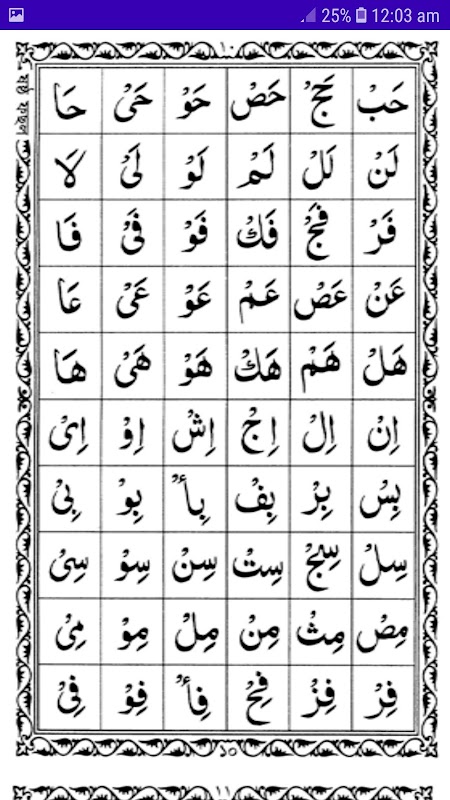 25% 12:03 am
١٠
حَبْ حَجْ حَصْ حَوْ حَىْ حَا
لَنْ لَلْ لَمْ لَوْ لَىْ لَا
فَرْ فَجْ فَكْ فَوْ فَىْ فَا
عَنْ عَصْ عَمْ عَوْ عَىْ عَا
هَلْ هَمْ هَكْ هَوْ هَىْ هَا
اِنْ اِلْ اِجْ اِشْ اِوْ اِىْ
بِسْ بِرْ بِفْ بِأْ بِوْ بِىْ
سِلْ سِجْ سِتْ سِنْ سِوْ سِىْ
مِصْ مِثْ مِنْ مِلْ مِوْ مِىْ
فِرْ فِزْ فِحْ فِأْ فِوْ فِىْ
১০
١١